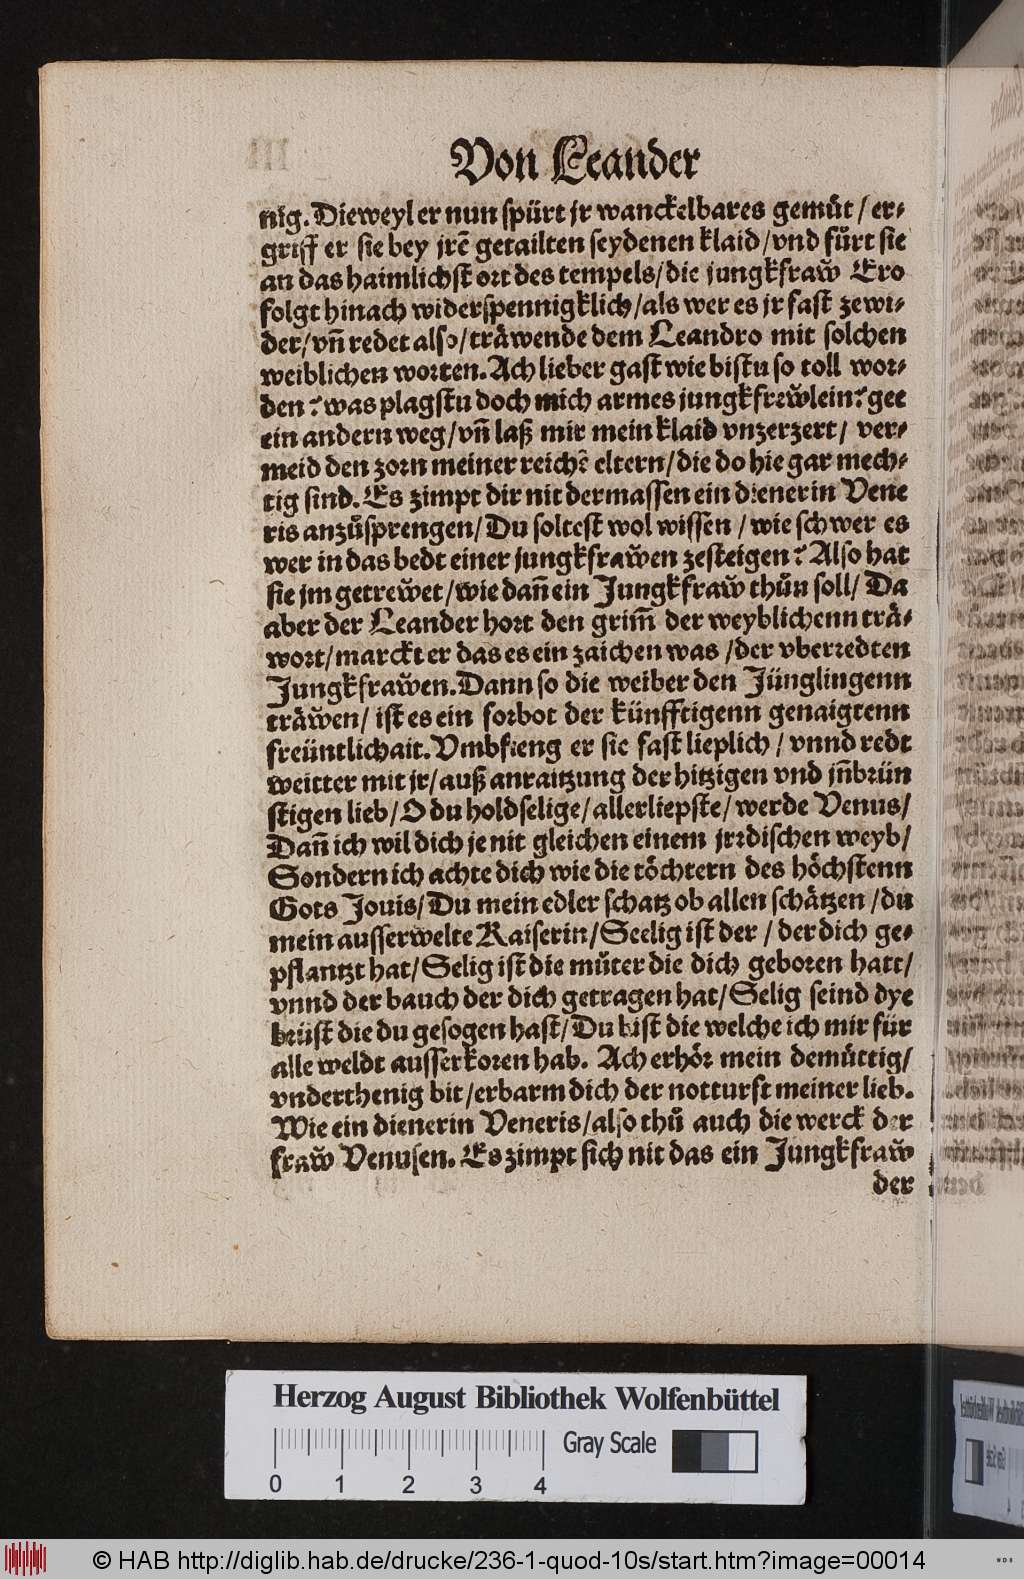 Von Leander
nig. Dieweyl er nun spürt jr wanckelbares gemuͤt / er⸗
griff er sie bey jrē getailten seydenen klaid / vnd fuͤrt sie
an das haimlichst ort des tempels / die jungkfraw̆ Ero
folgt hinach widerspennigklich / als wer es jr fast zewi⸗
der / vn̄ redet also / traͤwende dem Leandro mit solchen
weiblichen worten. Ach lieber gast wie bistu so toll wor⸗
den? was plagstu doch mich armes jungkfrew̆lein? gee
ein andern weg / vn̄ laß mir mein klaid vnzerzert / ver⸗
meid den zorn meiner reichē eltern / die do hie gar mech⸗
tig sind. Es zimpt dir nit dermassen ein dienerin Vene
ris anzuͦsprengen / Du soltest wol wissen / wie schwer es
wer in das bedt einer jungkfraw̆en zesteigen? Also hat
sie jm getrew̆et / wie dan̄ ein Jungkfraw̆ thuͦn soll / Da
aber der Leander hort den grim̄ der weyblichenn traͤ⸗
wort / marckt er das es ein zaichen was / der vberredten
Jungkfraw̆en. Dann so die weiber den Jünglingenn
traͤw̆en / ist es ein forbot der künfftigenn genaigtenn
freüntlichait. Vmbfieng er sie fast lieplich / vnnd redt
weitter mit jr / auß anraitzung der hitzigen vnd jn̄brün
stigen lieb / O du holdselige / allerliepste / werde Venus /
Dan̄ ich wil dich je nit gleichen einem jrrdischen weyb /
Sondern ich achte dich wie die toͤchtern des hoͤchstenn
Gots Jouis / Du mein edler schatz ob allen schaͤtzen / du
mein ausserwelte Kaiserin / Seelig ist der / der dich ge⸗
pflantzt hat / Selig ist die muͦter die dich geboren hatt /
vnnd der bauch der dich getragen hat / Selig seind dye
brüst die du gesogen hast / Du bist die welche ich mir für
alle weldt ausserkoren hab. Ach erhoͤr mein demuͤttig /
vnderthenig bit / erbarm dich der notturft meiner lieb.
Wie ein dienerin Veneris / also thuͦ auch die werck der
fraw̆ Venusen. Es zimpt sich nit das ein Jungkfraw̆
der
Herzog August Bibliothek Wolfenbüttel
Gray Scale
0 1 2 3 4
© HAB http://diglib.hab.de/drucke/236-1-quod-10s/start.htm?image=00014